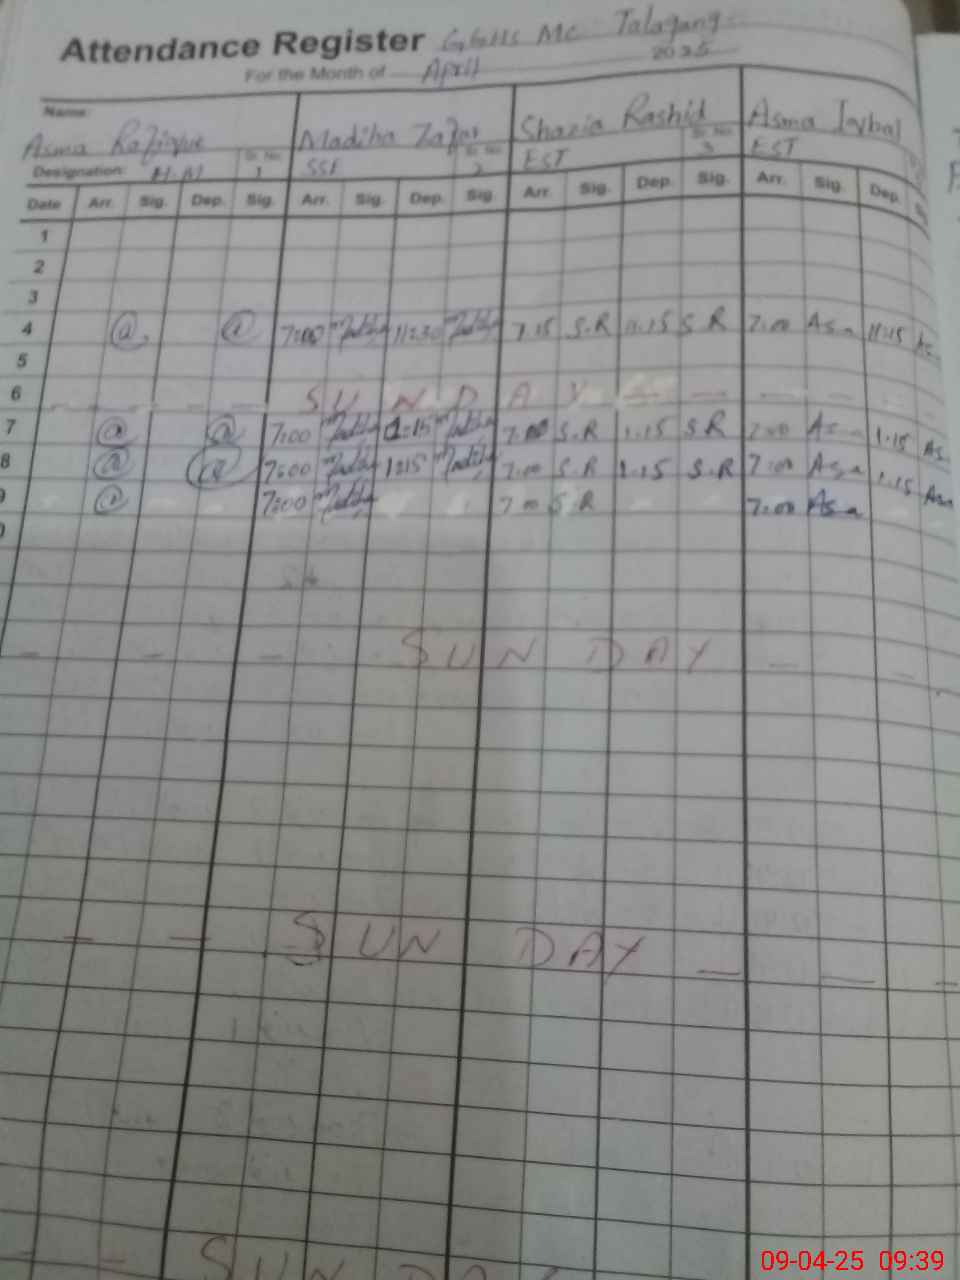 Attendance Register GGHS MC Talagang
For the Month of April 2025
Name:
Asma Madiha Zafar Shazia Rashid Asma Iqbal
Designation: H.M Sr. No. 1 SSE Sr. No. 2 EST Sr. No. 3 EST
Date Arr. Sig. Dep. Sig. Arr. Sig. Dep. Sig. Arr. Sig. Dep. Sig. Arr. Sig. Dep.
1
2
3
4 7:00 Madiha 11:30 Madiha 7.15 S.R 11.15 S R 7.00 Asma 11.15
5
6 S U N D A Y
7 7:00 Madiha 1:15 Madiha 7.00 S.R 1.15 S R 7.00 Asma 1.15 As
8 7:00 Madiha 1:15 Madiha 7.00 S.R 1.15 S.R 7.00 Asma 1.15 Asm
9 7:00 Madiha 7.00 S.R 7.00 Asma
0
S U N D A Y
S U N D A Y
S U N D A
09-04-25 09:39